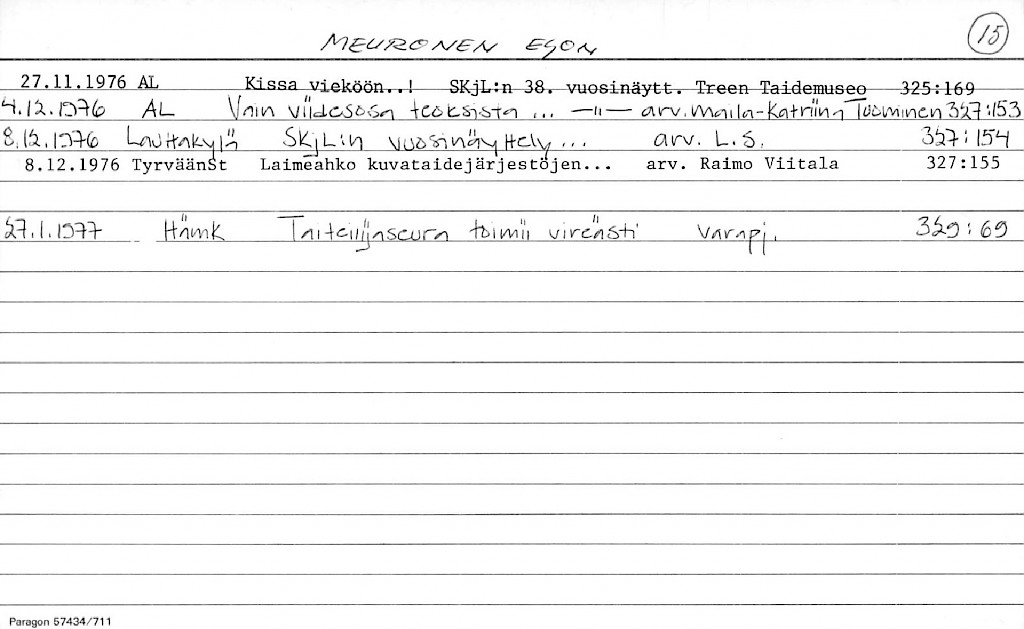 MEURONEN EGON 15
27.11.1976 AL Kissa vieköön..! SKjL:n 38. vuosinäytt. Treen Taidemuseo 325:169
4.12.1976 AL Vain viidesosa teoksista ... —"— arv. Maila-Katriina Tuominen 327:153
8.12.1976 Lauttakylä SKjL:n vuosinäyttely ... arv. L.S. 327:154
8.12.1976 TyrväänSt Laimeahko kuvataidejärjestöjen... arv. Raimo Viitala 327:155
27.1.1977 Hämk Taiteilijaseura toimii vireästi varapj. 329:69
Paragon 57434/711